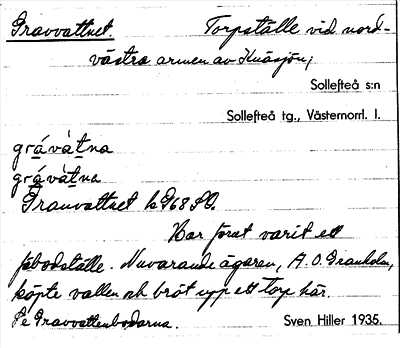 Gravvattnet. Torpställe vid nord-
västra armen av Knäsjön;
Sollefteå s:n
Sollefteå tg., Västernorrl. l.
grávàtna
grávàtna
Gravvattnet
Har förut varit ett
fäbodställe. Nuvarande ägaren, A. O. Granholm,
köpte vallen och bröt upp ett torp här.
Se Gravvattenbodarna. Sven Hiller 1935.